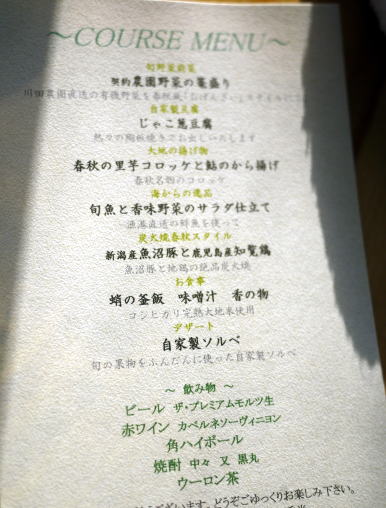 ～COURSE MENU～
旬野菜前菜
契約農園野菜の籠盛り
自家製豆腐
じゃこ葱豆腐
熱々の陶板焼きでお出しいたします
大地の揚げ物
春秋の里芋コロッケと鮎のから揚げ
春秋名物のコロッケ
海からの逸品
旬魚と香味野菜のサラダ仕立て
漁港直送の鮮魚を使って
炭火焼春秋スタイル
新潟産魚沼豚と鹿児島産知覧鶏
魚沼豚と地鶏の絶品炭火焼
お食事
蛸の釜飯 味噌汁 香の物
コシヒカリ完熟大地米使用
デザート
自家製ソルベ
旬の果物をふんだんに使った自家製ソルベ
～ 飲み物 ～
ビール ザ・プレミアムモルツ生
赤ワイン カベルネソーヴィニヨン
角ハイボール
焼酎 中々 又 黒丸
ウーロン茶
ございます。どうぞごゆっくりお楽しみ下さい。